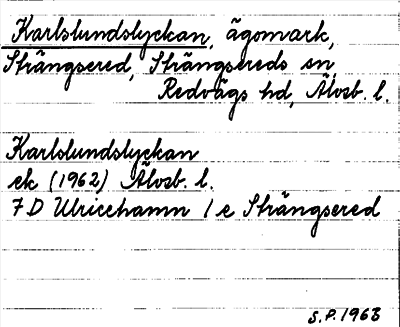 Karlslundslyckan, ägomark,
Strängsered, Strängsereds sn,
Redvägs hd, Älvsb. l.
Karlslundslyckan
ek (1962) Älvsb. l.
7 D Ulricehamn 1 e Strängsered
S.P. 1968